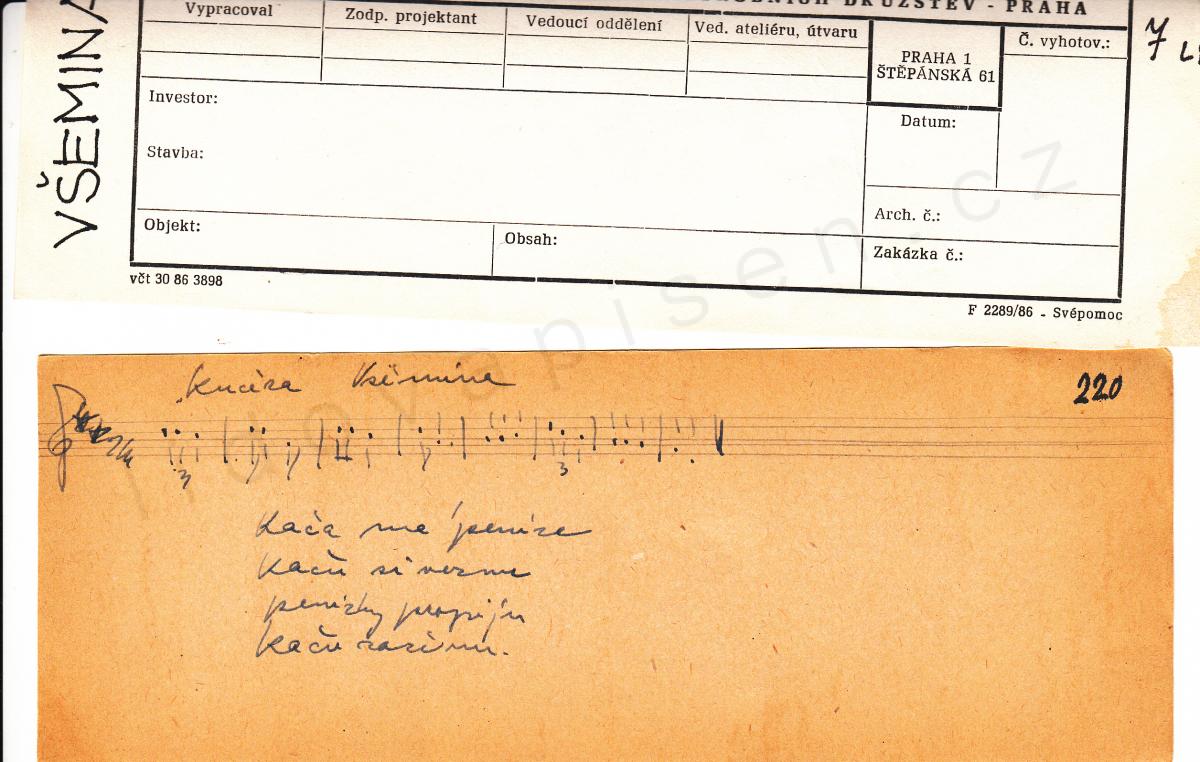 DRUŽSTEV - PRAHA
Vypracoval
Zodp. projektant
Vedoucí oddělení
Ved. ateliéru, útvaru
PRAHA 1
ŠTĚPÁNSKÁ 61
Č. vyhotov.:
7
VŠEMINA
Investor:
Datum:
Stavba:
Arch. č.:
Objekt:
Obsah:
Zakázka č.:
včt 30 86 3898
F 2289/86 - Svépomoc
lidovepisen.cz
Kučera Všemina
220
3
3
Kača má peníze
Kaču si vezmu
penízky propiju
Kaču zaženu.